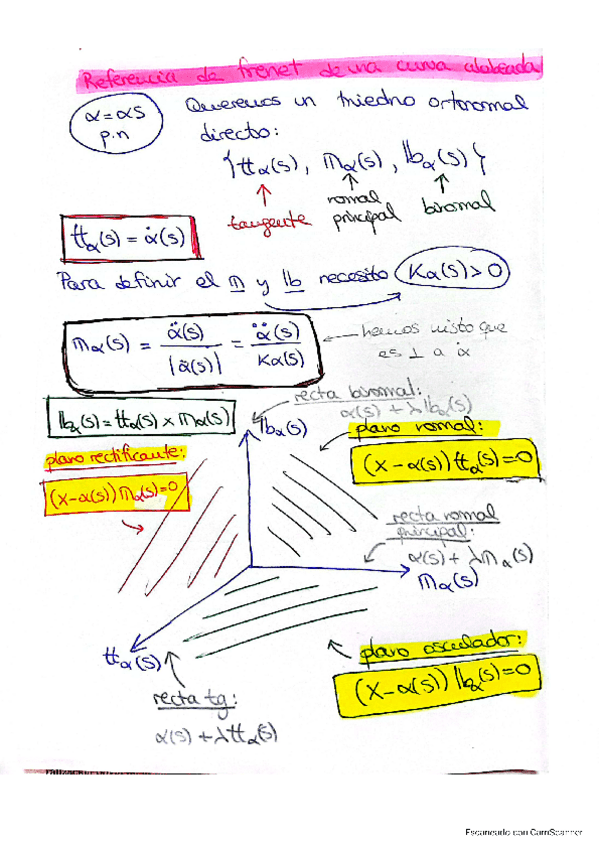 Referencia de frenet de una curva alabeada
α = αs
p.n
Queremos un triedro ortonormal
directo:
{𝕥α(s), 𝕟α(s), 𝕓α(s)}
tangente
normal
principal
binormal
𝕥α(s) = α̇(s)
Para definir el 𝕟 y 𝕓 necesito Kα(s) > 0
𝕟α(s) = α̈(s) / |α̈(s)| = α̈(s) / Kα(s)
hemos visto que
es ⊥ a α̇
𝕓α(s) = 𝕥α(s) × 𝕟α(s)
recta binormal:
α(s) + λ𝕓α(s)
𝕓α(s)
plano normal:
(x - α(s)) 𝕥α(s) = 0
plano rectificante:
(x - α(s)) 𝕟α(s) = 0
recta normal
principal:
α(s) + λ𝕟α(s)
𝕟α(s)
𝕥α(s)
plano osculador:
(x - α(s)) 𝕓α(s) = 0
recta tg:
α(s) + λ𝕥α(s)
Escaneado con CamScanner